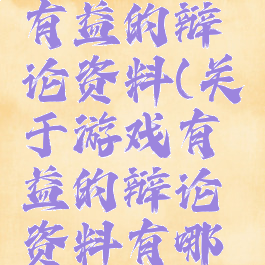 有益的辩
论资料(关
于游戏有
益的辩论
资料有哪